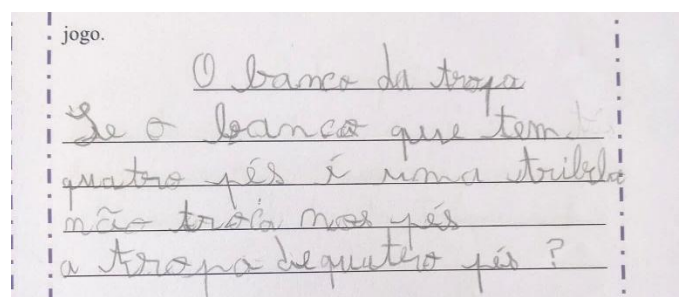 jogo.
O banco da tropa
Se o banco que tem
quatro pés é uma
não nos pés
a tropa de quatro pés ?